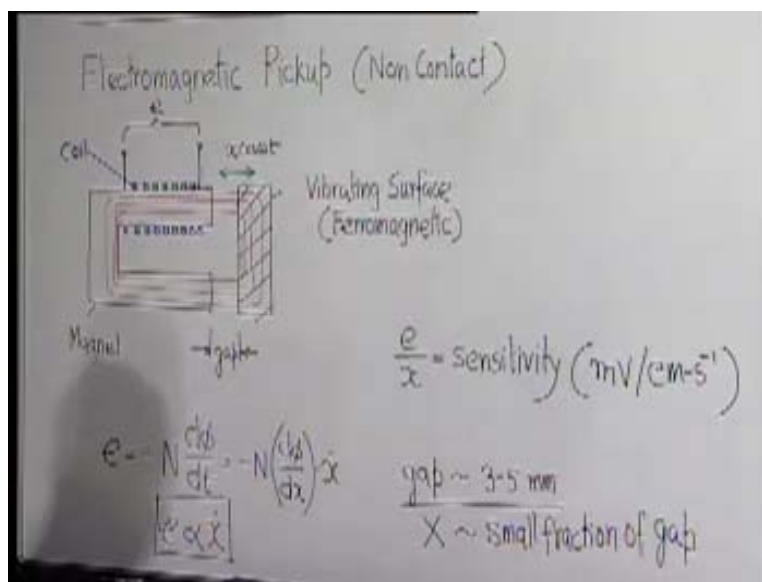 Electromagnetic Pickup (Non Contact)
e
Coil
Vibrating Surface
(Ferromagnetic)
Magnet
gap
e/x = sensitivity (mV/cm-s⁻¹)
e = -N dφ/dt = -N(dφ/dx) ẋ
e α ẋ
gap ~ 3-5 mm
X ~ small fraction of gap